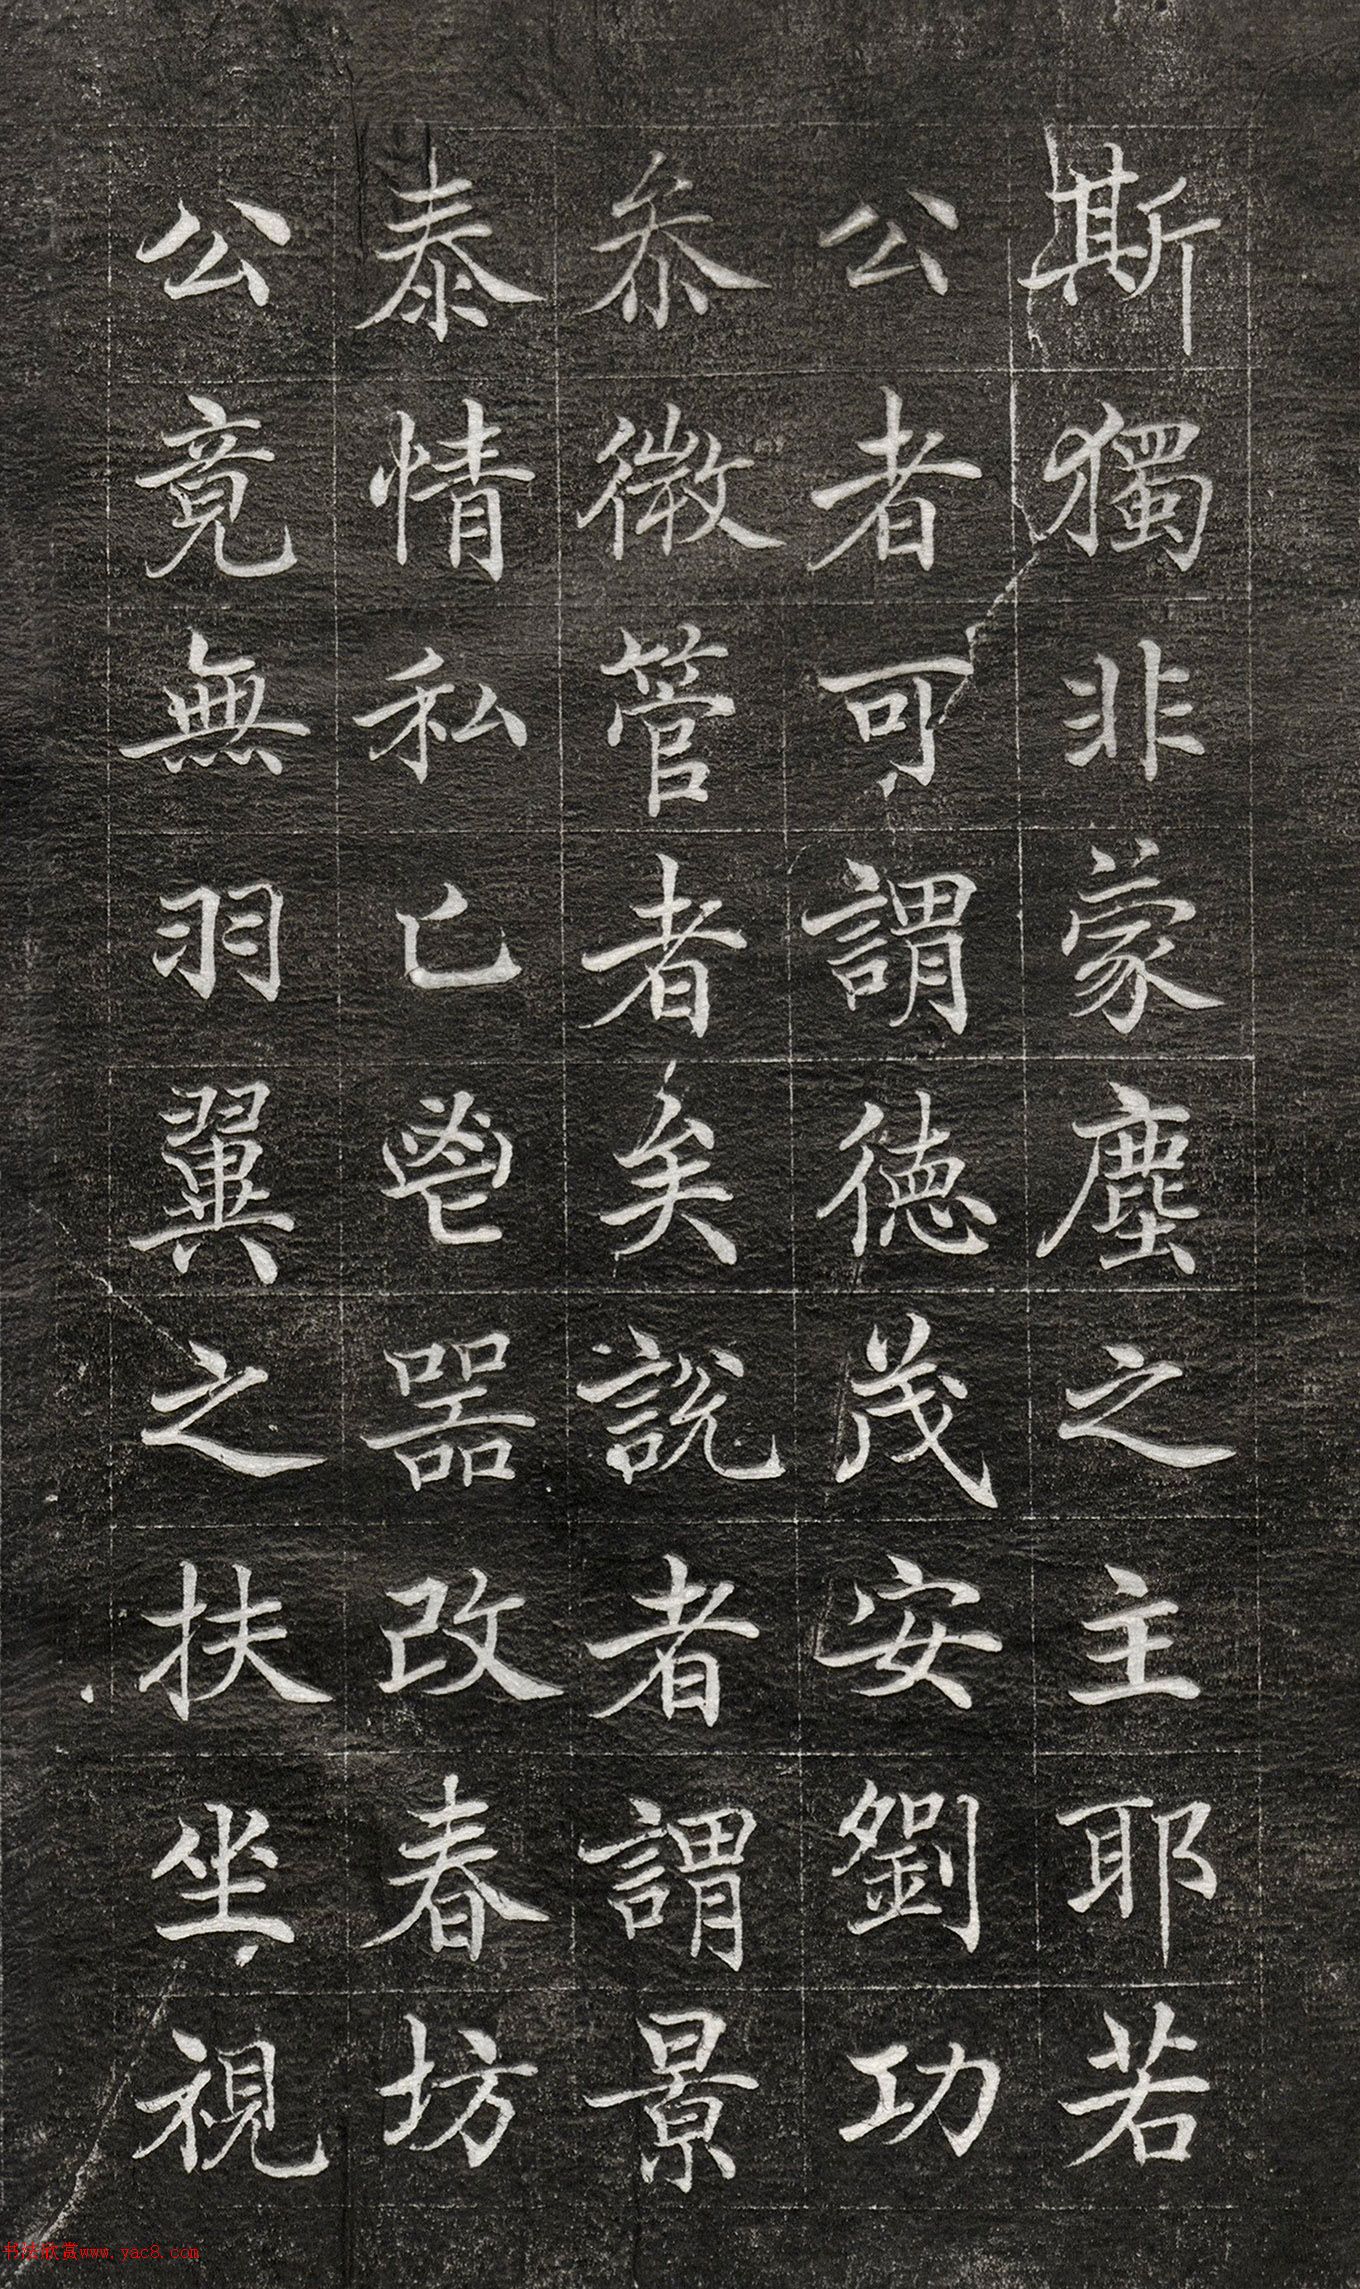 斯獨非蒙塵之主耶若
公者可謂德茂安劉功
叅微管者矣說者謂景
泰情私亡鬯噐改春坊
公竟無羽翼之扶坐視
书法欣赏www.yac8.com